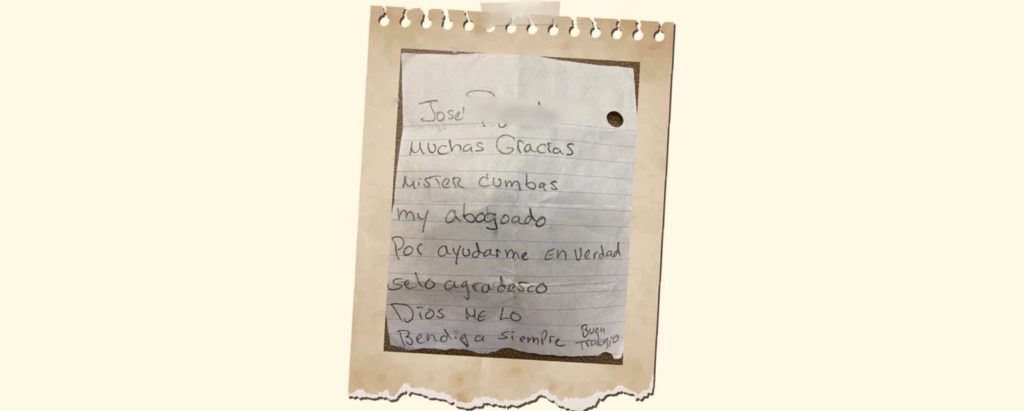 José
Muchas Gracias
Mister Cumbas
my abogoado
Por ayudarme en verdad
selo agradesco
Dios me lo
Bendiga siempre
Buen
Trabajo